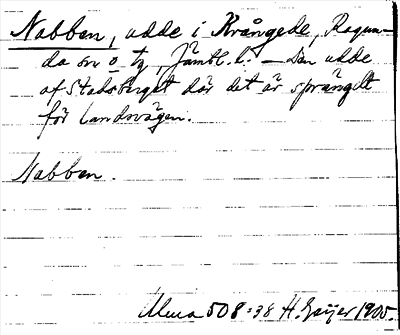 Nabben, udde i Krångede, Ragun-
da sn o tg, Jämtl. l. – Den udde
af Stadsberget där det är sprängdt
för landsvägen.
Nabben.
Ulma 508:38 H. Geijer 1905.